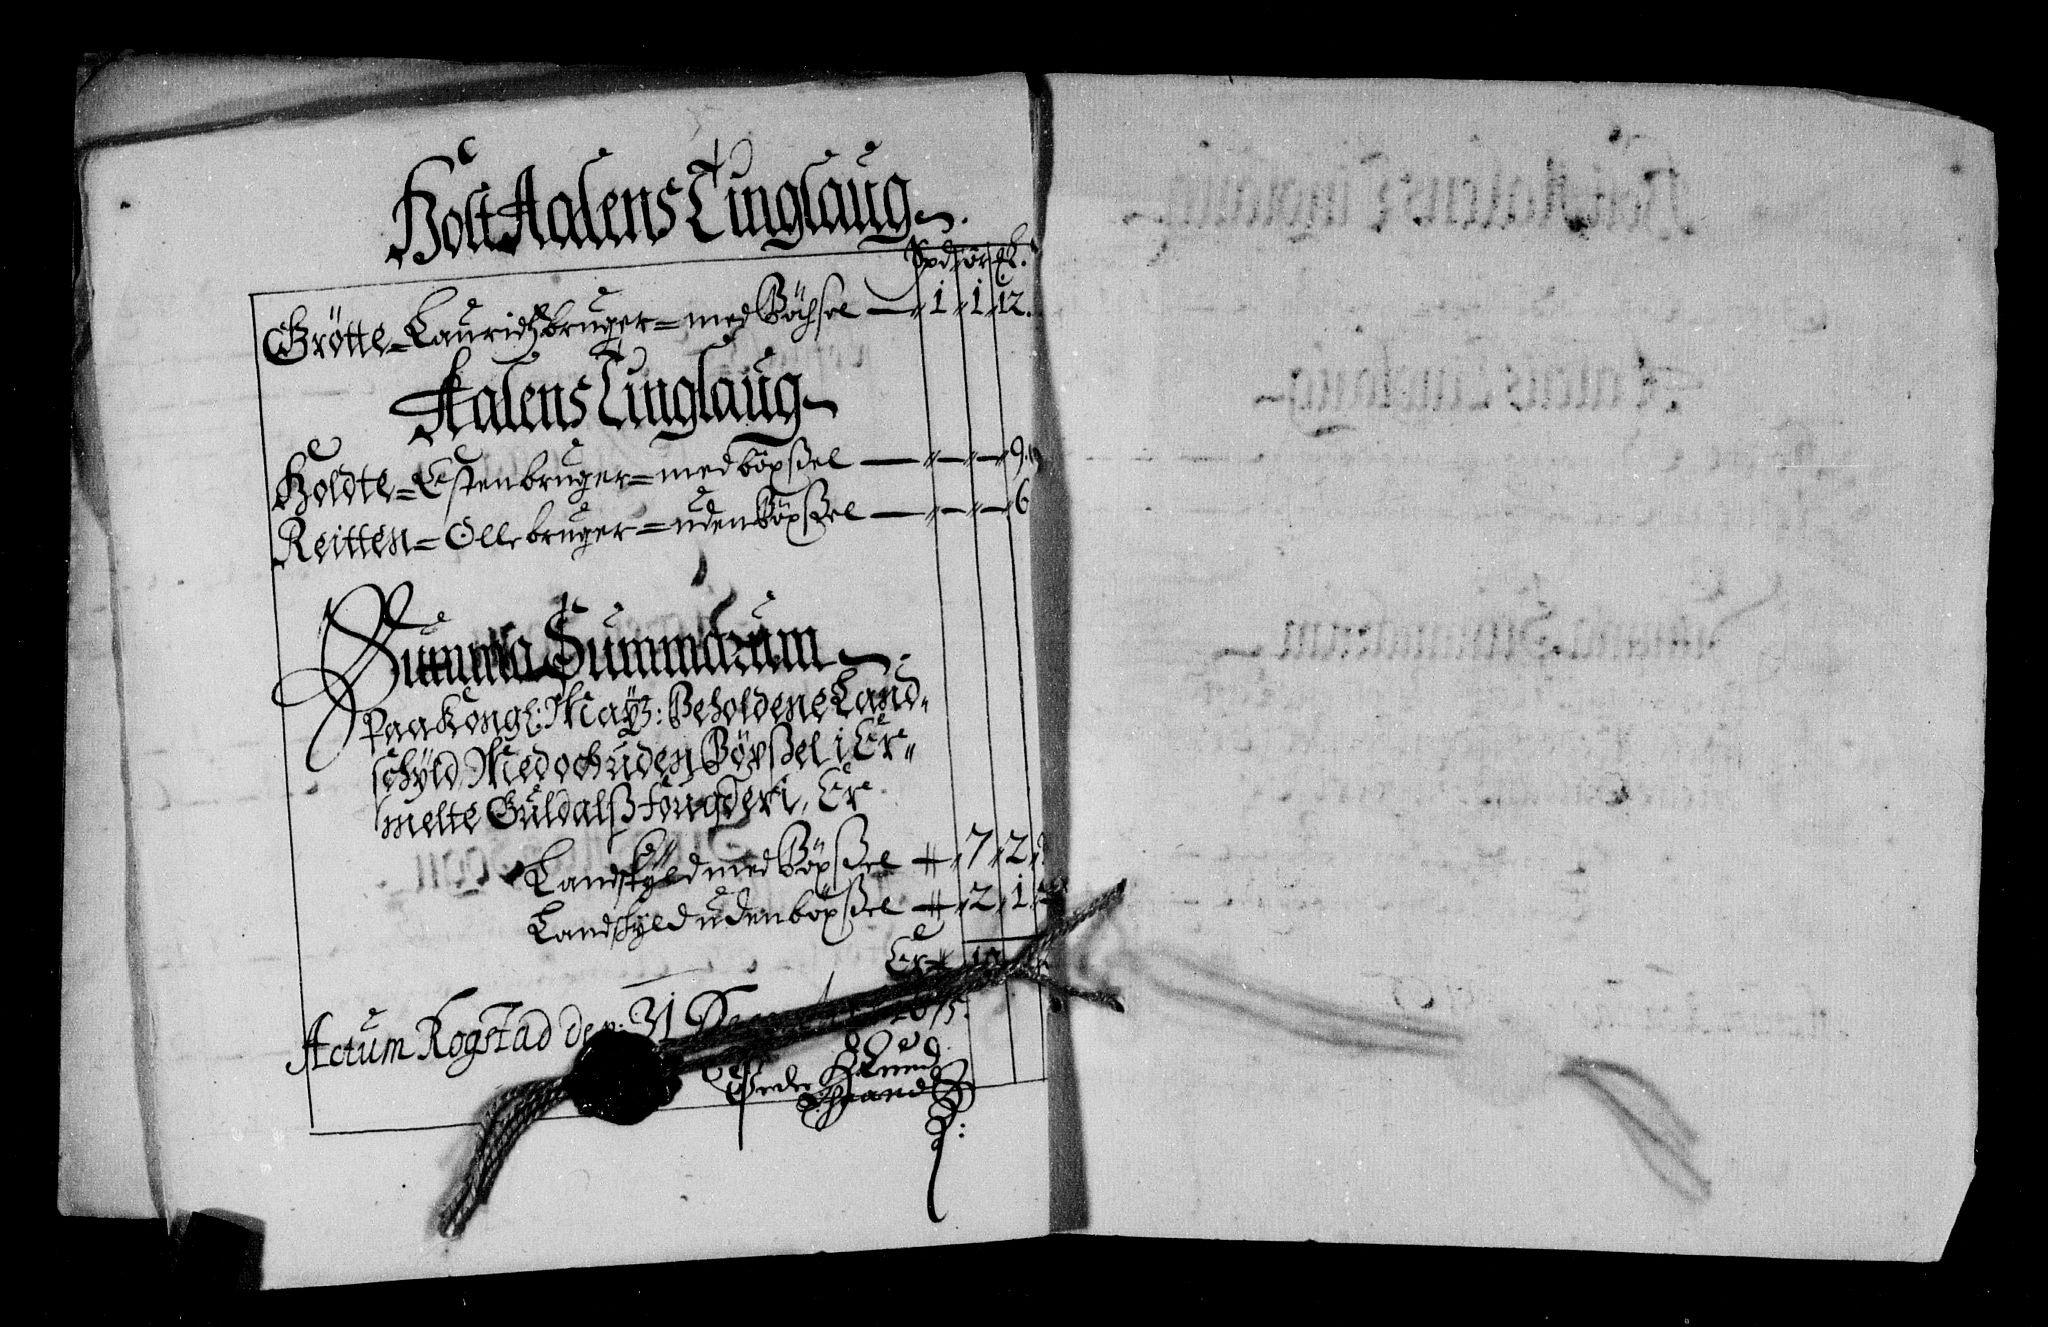 HoltAalens Tinglaug
Spd ør ₰.
Grötte = Lauridtz bruger = med Böchsel — 1 " 1 " 12.
Aalens Tinglaug
Holdte = Esten bruger = med böxsel — " — " — 9.
Reitten = Olle bruger = uden Böxsel — " — " — 6
Summa Summarum
Paa Kongl: May: Beholdene Land-
schyld, Med och uden Böxsel i Er-
melte Guldalß fougderi, Er
Landskyld med Böxsel 7 " 2 "
Landskyld uden böxsel 2 " 1 "
Er
Actum Rogstad den 31
Peder Lund